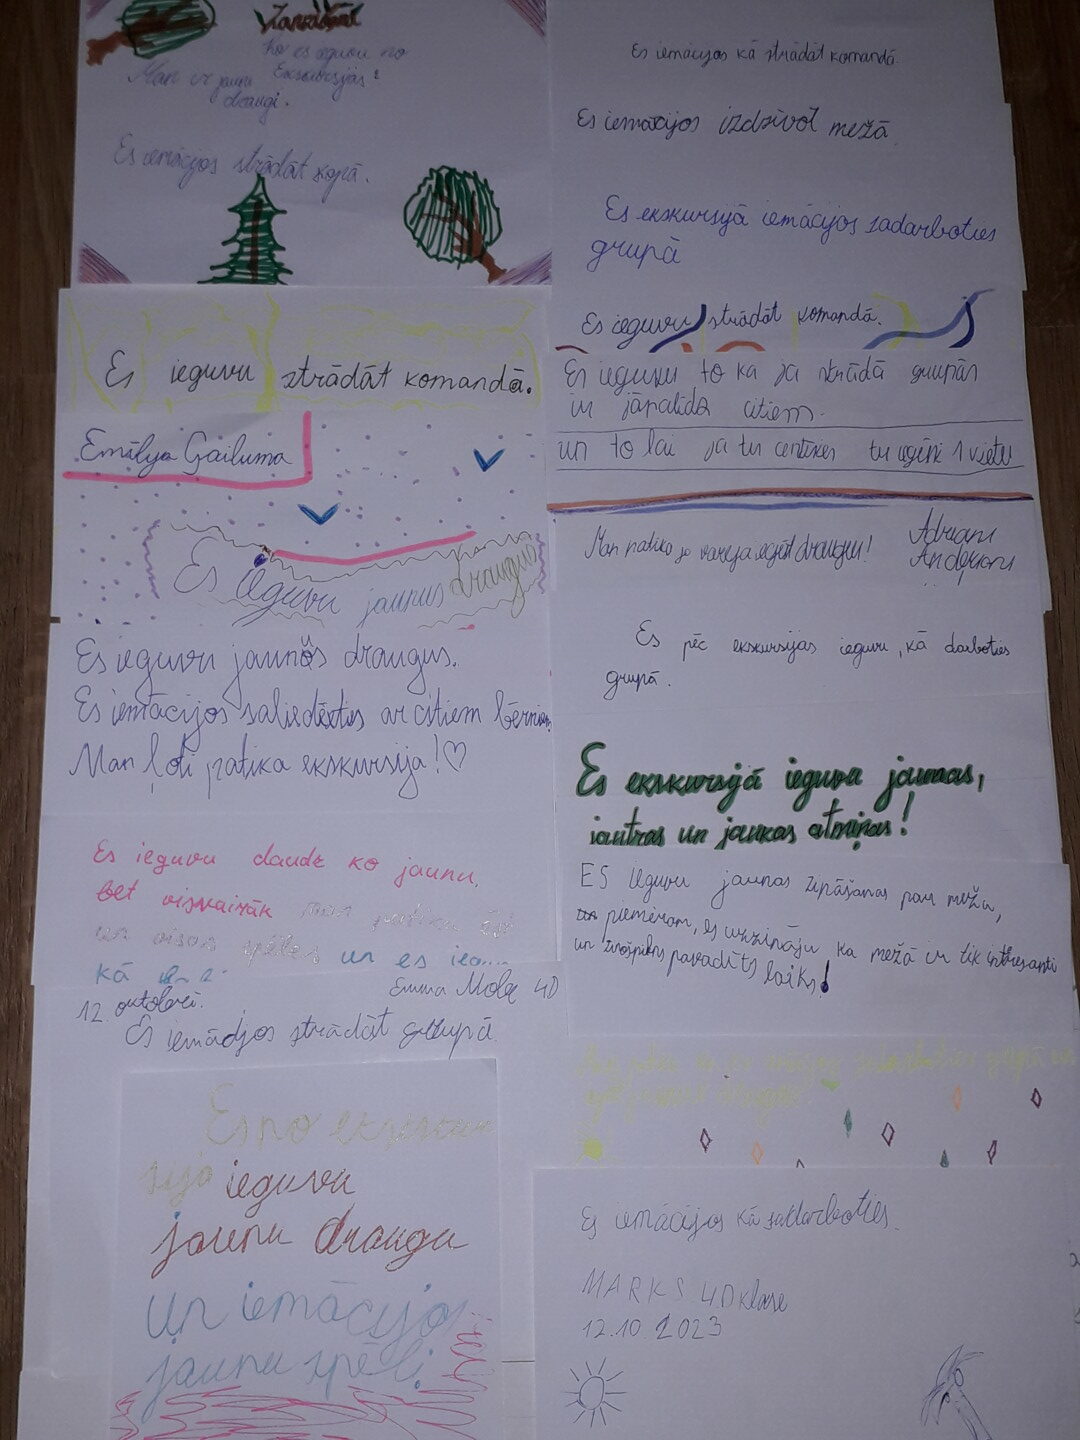 Ko es ieguvu no
Ekskursijas?
Man ir jauni
draugi.
Es iemācijos strādāt kopā.
Es ieguvu strādāt komandā.
Emīlya Gailuma
Es ieguvu jaunus draugus
Es ieguvu jaunos draugus.
Es iemācijos saliedēties ar citiem
Man ļoti patika ekskursija!♡
Es ieguvu daudz ko jaunu,
bet visvairāk man patika
un visas spēles un es
kā
12. oktobrī.
Emma Mola 4D
Es iemācijos strādāt grupā
Es no
ieguvu
jaunu draugu
un iemācijos
jaunu spēli.
Es iemācijos kā strādāt komandā.
Es iemācijos izdzīvot mežā
Es ekskursijā iemācijos sadarboties
grupā
Es ieguvu strādāt komandā.
Es ieguvu to ka ja strādā grupās
ir jāpalīdz citiem.
un to lai ja tu centīses tu iegūsi 1 vietu
Man patika jo varēja iegūt draugu!
Es pēc ekskursijas ieguvu, kā darboties
grupā.
Es ekskursijā ieguvu jaunas,
jautras un jaukas atmiņas!
ES Ieguvu jaunas zināšanas par mežu,
piemēram, es uzzināju ka mežā ir tik intresanti
un pavadīts laiks!
Es iemācijos kā sadarboties.
MARKS 4.D klase
12.10.2023